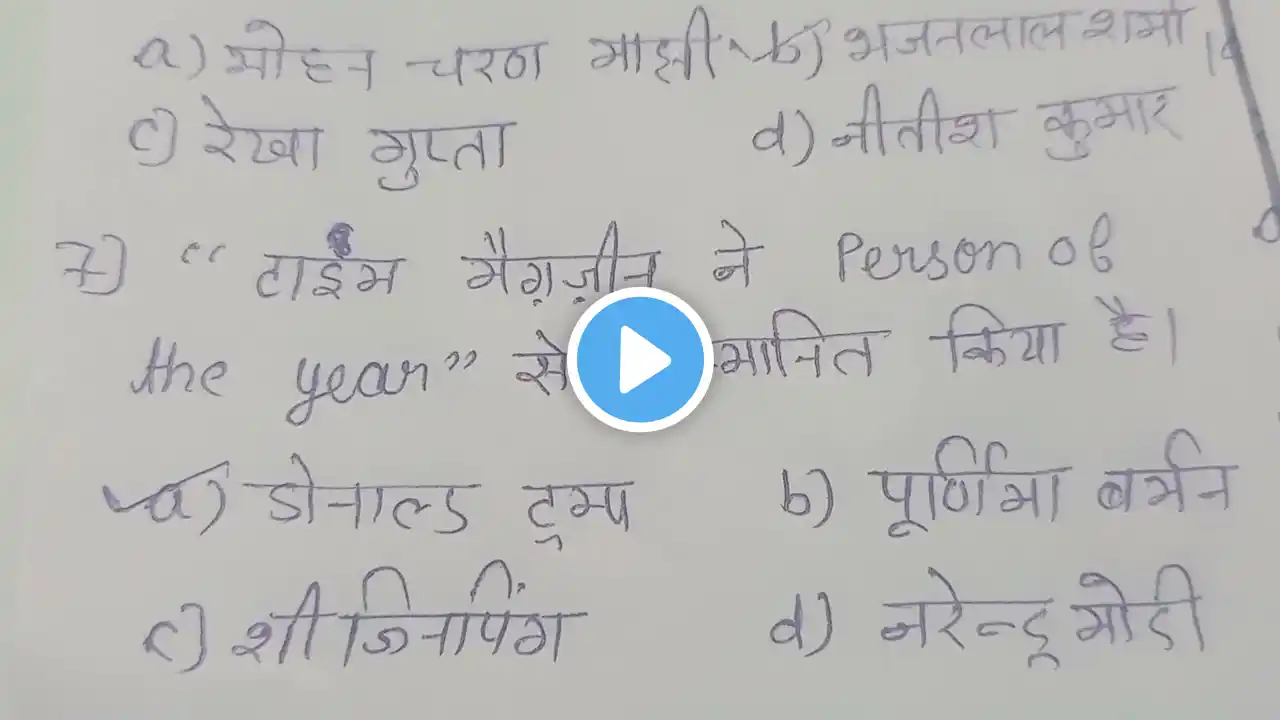 a) मोहन चरण माझी b) भजनलाल शर्मा
c) रेखा गुप्ता d) नीतीश कुमार
7) “ टाईम मैग़ज़ीन ने Person of
the year” से किया है।
a) डोनाल्ड ट्रम्प b) पूर्णिमा बर्मन
c) शी जिनपिंग d) नरेन्द्र मोदी